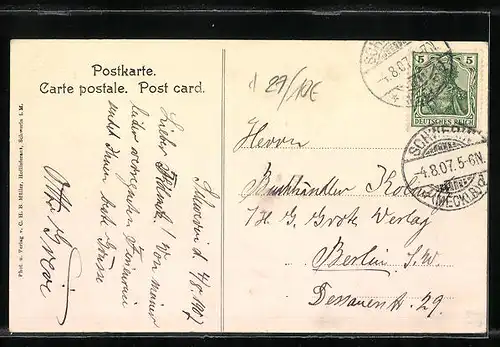 Postkarte.
Carte postale. Post card.
29/10
5 5
DEUTSCHES REICH
SCHWERIN
4.8.07
SCHWERIN
-4.8.07.5-6N.
(MECKLB)
Phot. u. Verlag v.
Müller, Hoflieferant, Schwerin i. M.
Schwerin d. 4/8. 1907
Lieber
! Von meiner
leider verregneten
sendet Ihnen beste Grüsse
Otto
Herrn
Buchhändler
i/H. G. Grote Verlag
Berlin S.W.
Dessauerstr. 29.